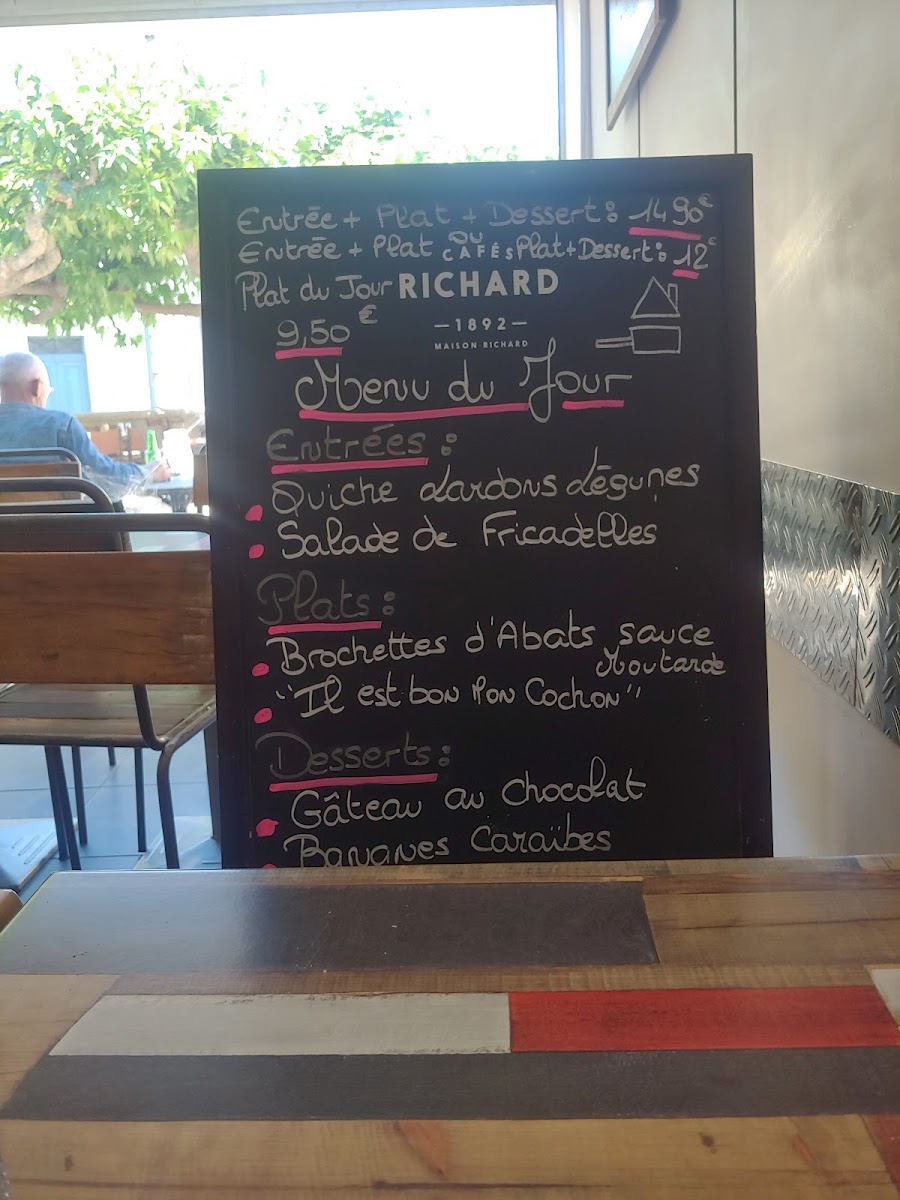 Entrée + Plat + Dessert: 14.90€
Entrée + Plat ou Plat + Dessert: 12€
CAFÉS
Plat du Jour
RICHARD
9,50€
—1892—
MAISON RICHARD
Menu du Jour
Entrées:
Quiche Lardons Légumes
Salade de Fricadelles
Plats:
Brochettes d'Abats sauce
Moutarde
"Il est bon Mon Cochon"
Desserts:
Gâteau au chocolat
Bananes Caraïbes